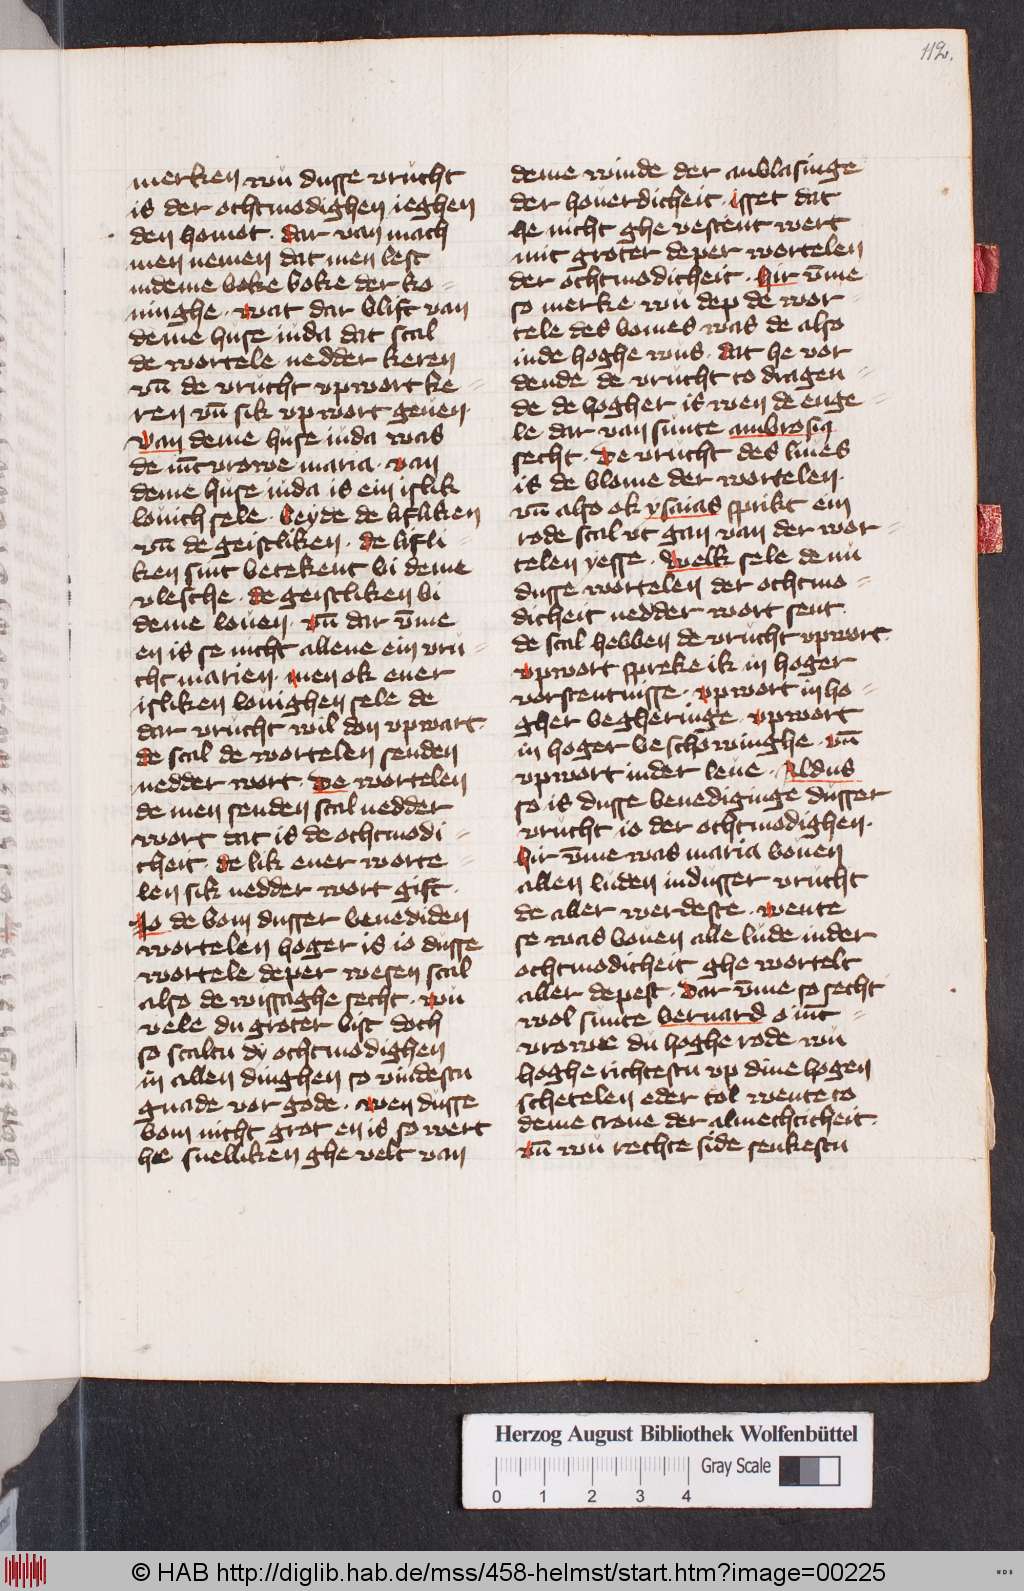 112.
merken wu dusse vrucht
is der ochtmodighen ieghen
den homot. dar van mach
men nemen dat men lest
indeme boke boke der ko-
ninghe. wat dar blift van
deme huse iuda dat scal
de wortele nedder keren
vn̄ de vrucht vpwort ke=
ren vn̄ sik vpwort geuen.
van deme huse iuda was
de iūcvrowe maria. van
deme huse iuda is ein islik
louich sele. beyde de lifliken
vn̄ de geistliken. de lifli-
ken sint betekent bi deme
vlesche. de geistliken bi
deme louen. vn̄ dar v̄me
en is se nicht allene ein vru=
cht marien. men ok ener
isliken louighen sele de
dar vrucht wil don vpwart.
de scal de wortelen senden
nedder wort. De wortelen
de men senden scal nedder
wort dat is de ochtmodi=
cheit. de lik ener worte=
len sik nedder wort gift.
Jo de bom dusser benediden
wortelen hoger is io dusse
wortele deper wesen scal
also de wissaghe secht. wu
vele du groter bist doch
so scaltu dy ochtmodighen
in allen dinghen so vindestu
gnade vor gode. wen dusse
bom nicht grot en is so wert
he snelliken ghe velt van
deme winde der anblasinge
der houerdicheit. isset dat
he nicht ghe vestent wert
mit groter deper wortelen
der ochtmodicheit. hir v̄me
so merke wu dep de wor-
tele des bomes was de also
inde hoghe wus. dat he vor
dende de vrucht to dragen=
de de hogher is wen de enge=
le dar van sunte ambrosiꝫ
secht. De vrucht des liues
is de blome der wortelen.
vn̄ also ok ysaias sprikt ein
rode scal vt gan van der wor=
telen yesse. welk sele de nu
dusse wortelen der ochtmo=
dicheit nedder wort sent.
de scal hebben de vrucht vpwort.
vpwort spreke ik in hoger
vorstentnisse. vpwort in ho=
gher begheringe. vpwort
in hoger beschowinghe. vn̄
vpwort inder leue. Aldus
so is dusse benedginge dusser
vrucht io der ochtmodighen.
hir v̄me was maria bouen
allen luden indusser vrucht
de aller werdeste. wente
se was bouen alle lude inder
ochtmodicheit ghe wortelt
aller depest. Dar v̄me so secht
wol sunte bernard o iūc=
vrowe du hoghe rode wu
hoghe richtestu vp dine hogen
schetelen eder tol wente to
deme trone der almechticheit.
vn̄ wu rechte side senkestu
Herzog August Bibliothek Wolfenbüttel
Gray Scale
0 1 2 3 4
© HAB http://diglib.hab.de/mss/458-helmst/start.htm?image=00225